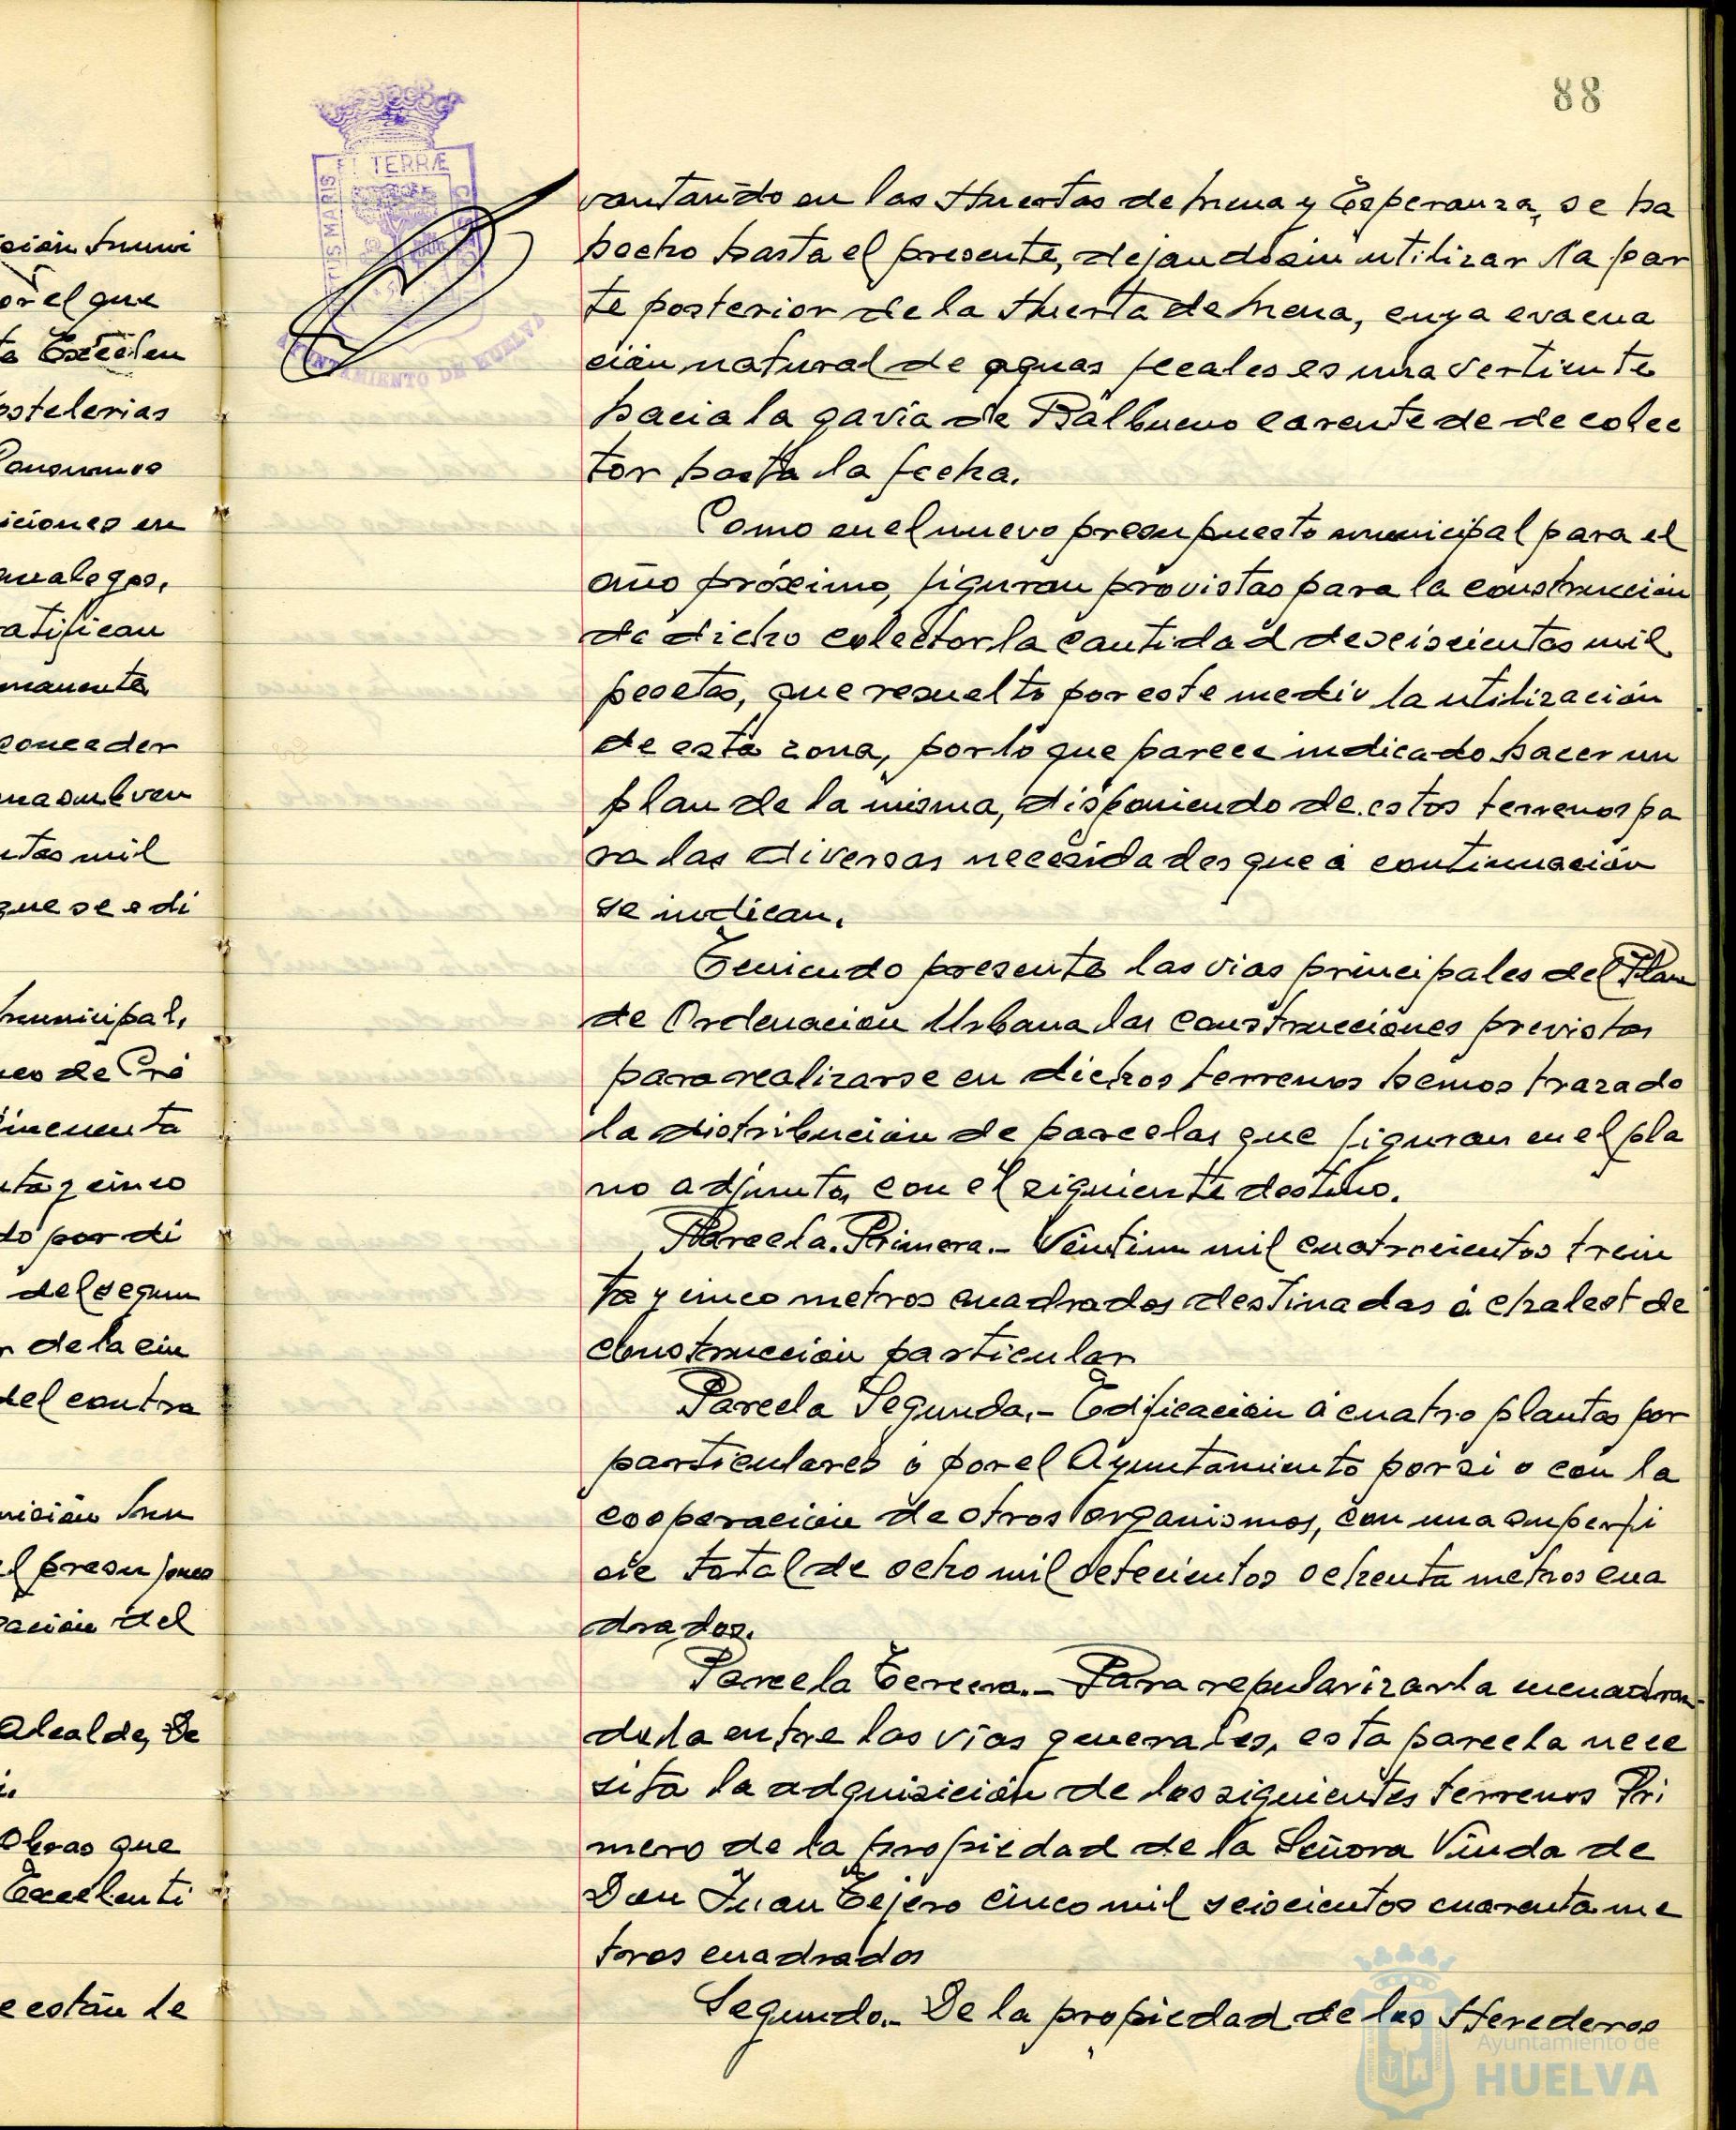 88
ET TERRÆ
TUS MARIS
AYUNTAMIENTO DE HUELVA
vantando en las Huertas de Mena y Esperanza, se ha
hecho hasta el presente, dejando sin utilizar la par
te posterior de la Huerta de Mena, cuya evacua
ción natural de aguas fecales es una vertiente
hacia la gavia de Balbueno carente de de colec
tor hasta la fecha.
Como en el nuevo presupuesto municipal para el
año próximo, figuran provistas para la construcción
de dicho colector la cantidad de seiscientas mil
pesetas, que resuelto por este medio la utilización
de esta zona, por lo que parece indicado hacer un
plan de la misma, disponiendo de estos terrenos pa
ra las diversas necesidades que á continuación
se indican.
Teniendo presente las vias principales del Plan
de Ordenación Urbana las construcciones previstas
para realizarse en dichos terrenos hemos trazado
la distribución de parcelas que figuran en el pla
no adjunto, con el siguiente destino.
Parcela Primera.- Ventiun mil cuatrocientos trein
ta y cinco metros cuadrados destinadas á chalest de
construcción particular
Parcela Segunda.- Edificación á cuatro plantas por
particulares ó por el Ayuntamiento por si o con la
cooperación de otros organismos, con una superfi
cie total de ocho mil setecientos ochenta metros cua
drados.
Parcela Tercera.- Para regularizarla encuadran-
dola entre las vías generales, esta parcela nece
sita la adquisición de los siguientes terrenos Pri
mero de la propiedad de la Señora Viuda de
Don Juan Tejero cinco mil seiscientos cuarenta me
tros cuadrados
Segundo.- De la propiedad de los Herederos
or el que
ostelerias
iciones en
ratifican
manente
conceder
ntas mil
que se edi
municipal,
cincuenta
nta y cinco
do por di
del segun
r de la cin
del contra
el presupues
ración del
Alcalde, De
Obras que
Excelenti
e están le
Ayuntamiento de
HUELVA